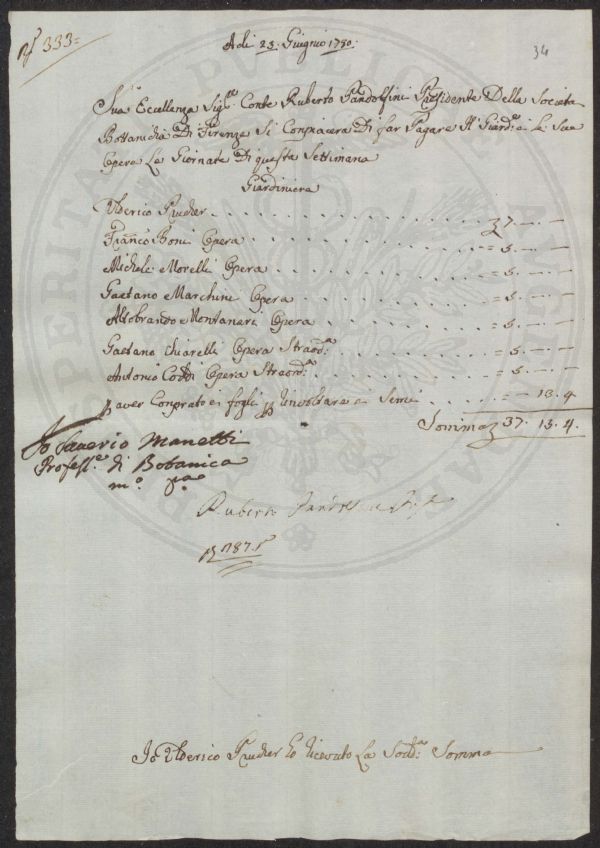 N° 333=
34
Adi 23: Giugnio 1750:
Sua Eccellenza Sig.re Conte Ruberto Pandolfini Presidente Della Societa
Bottanicha Di Firenze Si Conpiacera Di far Pagare Al Giard.e e Le Sue
Opera Le Giornate Di questa Settimana
Giardiniera
Ulderico Prucher . . . . . . . . . 7. — —
Franco Boni Opera . . . . . . . . . = 5. — —
Michele Morelli Opera . . . . . . . . = 5. — —
Gaetano Marchini Opera . . . . . . . = 5. — —
Altobrando Montaneri Opera . . . . . . = 5. — —
Gaetano Chiarelli Opera Straord.a . . . . . = 5. — —
Antonio Opera Straord.a . . . . . . = 5. — —
p aver Conprato fogli p Involtare Semi . . . . — 13. 4
Somma 37. 13. 4.
Io Saverio Manetti
Profess.e di Botanica
m.o p.a
Ruberto
Io Ulderico Prucher ho Ricevuto La Sod.a Somma
PUBLICAE
PROSPERITATI
AUGENDAE